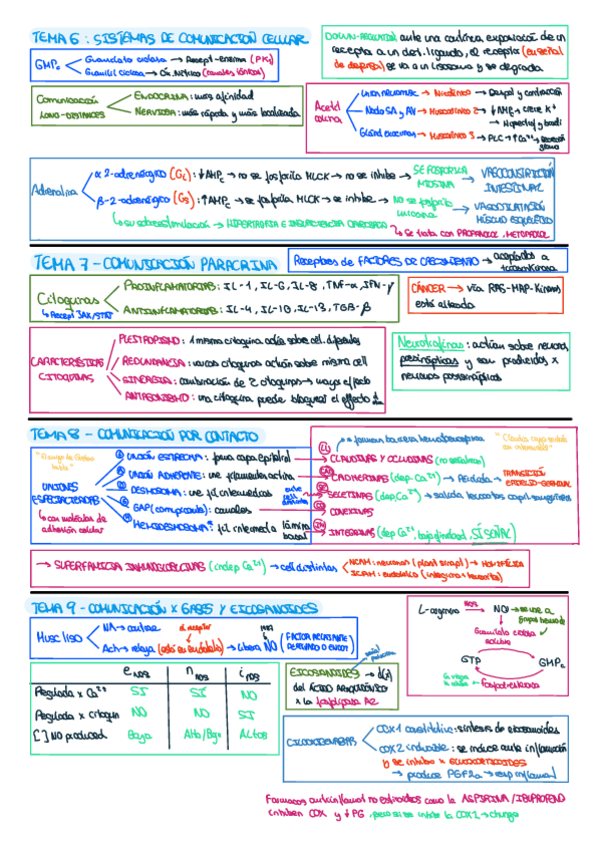 TEMA 6: SISTEMAS DE COMUNICACIÓN CELULAR
GMPc
Guanilato ciclasa → Recept-enzima (PKG)
Guanilil ciclasa → Óx. Nítrico (canales iónicos)
DOWN-REGULATION ante una continua exposición de un
receptor a un det. ligando, el receptor (en señal
de defensa) se va a un lisosoma y se degrada.
Comunicación
LONG-DISTANCES
ENDOCRINA: más afinidad
NERVIOSA: más rápida y más localizada
Acetil
colina
Unión neuromusc → Nicotínico → Despol y contracción
Nodo SA y AV → Muscarínico 2 → ↓AMPc → cierre K+
→ Hiperpol y bradi
Gland exocrinas → Muscarínico 3 → PLC → ↑Ca2+ → secreción
Adrenalina
α2-adrenérgico (Gi): ↓AMPc → no se fosforila MLCK → no se inhibe →
SE FOSFORILA
MIOSINA
→ VASOCONSTRICCIÓN
INTESTINAL
β-2-adrenérgico (Gs): ↑AMPc → se fosforila MLCK → se inhibe →
NO se fosforila
miosina
→ VASODILATACIÓN
MÚSCULO ESQUELÉTICO
↳ su sobreestimulación → HIPERTROFIA E INSUFICIENCIA CARDIACA
↳ Se trata con PROPANOLOL, METOPROLOL
TEMA 7 - COMUNICACIÓN PARACRINA
Receptores de FACTORES DE CRECIMIENTO → acoplados a
tirosin kinasa
Citoquinas
↳ Recept JAK/STAT
PROINFLAMATORIAS: IL-1, IL-6, IL-8, TNF-α, IFN-γ
ANTIINFLAMATORIAS: IL-4, IL-10, IL-13, TGB-β
CÁNCER → vía RAS-MAP-Kinasa
está alterada
CARACTERÍSTICAS
CITOQUINAS
PLEITROPISMO: 1 misma citoquina actúa sobre cél. diferentes
REDUNDANCIA: varias citoquinas actúan sobre misma cell
SINERGIA: combinación de 2 citoquinas → mayor efecto
ANTAGONISMO: una citoquina puede bloquear el efecto
Neurotrofinas: actúan sobre neuronas
presinápticas y son producidas x
neuronas postsinápticas
TEMA 8 - COMUNICACIÓN POR CONTACTO
UNIONES
ESPECIALIZADAS
↳ con moléculas de
adhesión celular
UNIÓN ESTRECHA: forma capa epitelial
UNIÓN ADHERENTE: une filamentos actina
DESMOSOMA: une fil intermedios
GAP (comunicante): canales
HEMIDESMOSOMA: fil intermedio lámina
basal
→ forman barrera hematoencefálica
CLAUDINAS Y OCLUDINAS (no señalización)
CADHERINAS (dep. Ca2+) → Pérdida →
TRANSICIÓN
SELECTINAS (dep, Ca2+) → salida leucocitos capil. sanguíneos
CONEXINAS
INTEGRINAS (dep Ca2+, baja afinidad, SÍ SEÑAL)
→ SUPERFAMILIA INMUNOGLOBULINAS (indep Ca2+) → cell distintas
NCAM: neuronas → HOMOFÍLICA
ICAM: endotelio (integrina + leucocito)
TEMA 9 - COMUNICACIÓN X GASES Y EICOSANOIDES
Musc liso
NA → contrae
Ach → relaja (está en endotelio) → Libera NO
(FACTOR RELAJANTE
DERIVADO D ENDOT)
L-arginina → NO → se une a
grupo hemo de
Guanilato ciclasa
soluble
GTP
GMPc
Fosfodiesterasa
eNOS nNOS iNOS
Regulada x Ca2+ SÍ SÍ NO
Regulada x citoquin NO NO SÍ
[ ] NO producida Baja Alta/Baja Altas
EICOSANOIDES →
del ÁCIDO ARAQUIDÓNICO
x la fosfolipasa A2
CICLOOXIGENASAS
COX1 constitutiva: síntesis de eicosanoides
COX2 inducible: se induce ante inflamación
y se inhibe x GLUCOCORTICOIDES
→ produce PGF2α → resp inflamat
Fármacos antiinflamat no esteroideos como la ASPIRINA/IBUPROFENO
inhiben COX y ↓PG, pero si se inhibe la COX 2 → chungo